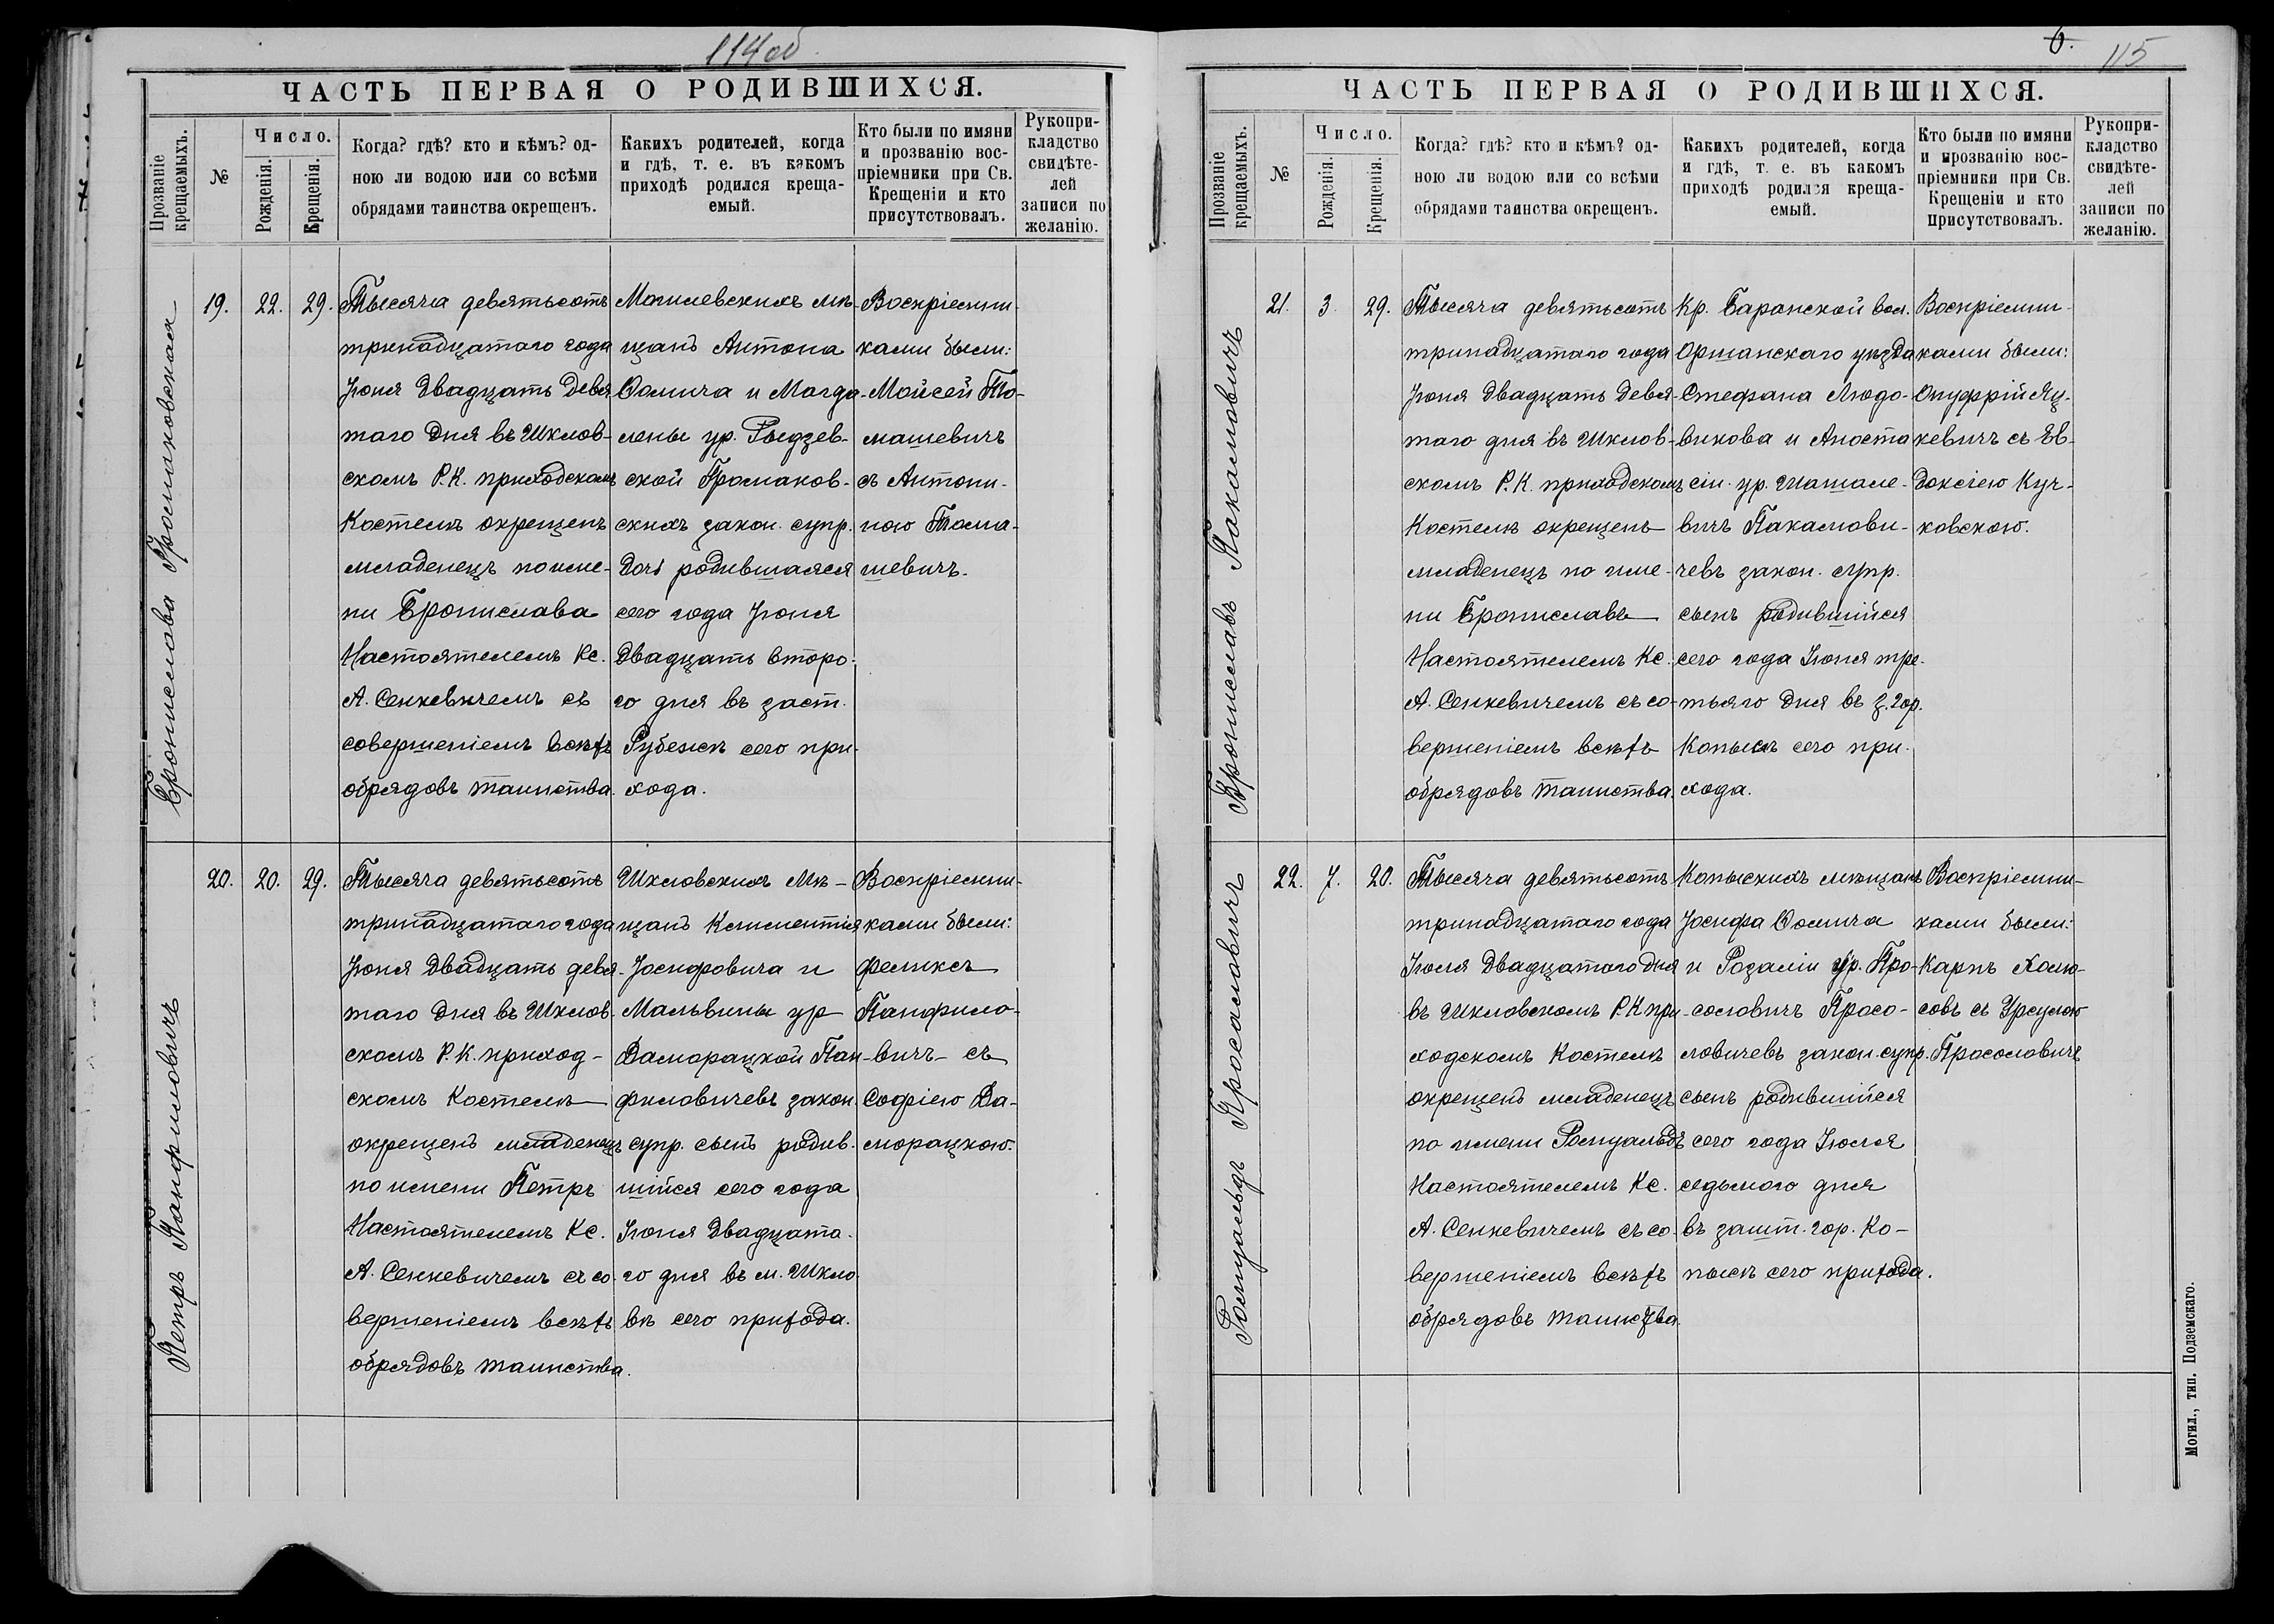 114об
ЧАСТЬ ПЕРВАЯ О РОДИВШИХСЯ.
Прозваніе крещаемыхъ.
№
Число.
Рожденія.
Крещенія.
Когда? гдѣ? кто и кѣмъ? од-
ною ли водою или со всѣми
обрядами таинства окрещенъ.
Какихъ родителей, когда
и гдѣ, т. е. въ какомъ
приходѣ родился креща-
емый.
Кто были по имяни
и прозванію вос-
пріемники при Св.
Крещеніи и кто
присутствовалъ.
Рукопри-
кладство
свидѣте-
лей
записи по
желанію.
Бронислава Громаковская
19.
22.
29.
Тысяча девятьсотъ
тринадцатаго года
Іюня двадцать девя
таго дня въ Шклов-
скомъ Р.К. приходскомъ
Костелѣ окрещенъ
младенецъ по име-
ни Бронислава
Настоятелемъ Кс.
А. Сенкевичемъ съ
совершеніемъ всѣхъ
обрядовъ таинства.
Могилевскихъ мѣ-
щанъ Антона
Ѳомича и Магда-
лены ур. Рыдзев-
ской Громаков-
скихъ закон. супр.
дочь родившаяся
сего года Іюня
двадцать второ-
го дня въ заст.
Рубежѣ сего при-
хода.
Воспріемни-
ками были:
Мойсей То-
машевичъ
съ Антони-
ною Тома-
шевичъ.
Петръ Панфиловичъ
20.
20.
29.
Тысяча девятьсотъ
тринадцатаго года
Іюня двадцать девя-
таго дня въ Шклов-
скомъ Р.К. приход-
скомъ Костелѣ
окрещенъ младенецъ
по имени Петръ
Настоятелемъ Кс.
А. Сенкевичемъ съ со-
вершеніемъ всѣхъ
обрядовъ таинства.
Шкловскихъ Мѣ-
щанъ Климентія
Іосифовича и
Мальвины ур
Даморацкой Пан-
филовичевъ закон.
супр. сынъ родив-
шійся сего года
Іюня двадцата-
го дня въ м. Шкло
вѣ сего прихода.
Воспріемни-
ками были:
Феликсъ
Панфило-
вичъ съ
Софіею Да-
морацкою.
6.
115
ЧАСТЬ ПЕРВАЯ О РОДИВШИХСЯ.
Прозваніе крещаемыхъ.
№
Число.
Рожденія.
Крещенія.
Когда? гдѣ? кто и кѣмъ? од-
ною ли водою или со всѣми
обрядами таинства окрещенъ.
Какихъ родителей, когда
и гдѣ, т. е. въ какомъ
приходѣ родился креща-
емый.
Кто были по имяни
и прозванію вос-
пріемники при Св.
Крещеніи и кто
присутствовалъ.
Рукопри-
кладство
свидѣте-
лей
записи по
желанію.
Брониславъ Пакаловичъ
21.
3.
29.
Тысяча девятьсотъ
тринадцатаго года
Іюня двадцать девя-
таго дня въ Шклов-
скомъ Р.К. приходскомъ
Костелѣ окрещенъ
младенецъ по име-
ни Брониславъ
Настоятелемъ Кс.
А. Сенкевичемъ съ со-
вершеніемъ всѣхъ
обрядовъ таинства.
Кр. Баранской вол.
Оршанскаго уѣзда
Стефана Людо-
викова и Анаста
сіи ур. Шатале-
вичъ Пакалови-
чевъ закон. супр.
сынъ родившійся
сего года Іюня тре-
тьяго дня въ з. гор.
Копысѣ сего при-
хода.
Воспріемни-
ками были:
Онуфрій Яц-
кевичъ съ Ев-
докіею Куч-
ковскою.
Ромуальдъ Просоловичъ
22.
7.
20.
Тысяча девятьсотъ
тринадцатаго года
Іюля двадцатаго дня
въ Шкловскомъ Р.К при-
ходскомъ Костелѣ
окрещенъ младенецъ
по имени Ромуальдъ
Настоятелемъ Кс.
А. Сенкевичемъ съ со-
вершеніемъ всѣхъ
обрядовъ таинства.
Копыскихъ мѣщанъ
Іосифа Ѳомича
и Розаліи ур. Про-
соловичъ Просо-
ловичевъ закон. супр.
сынъ родившійся
сего года Іюля
седьмого дня
въ зашт. гор. Ко-
пысѣ сего прихода.
Воспріемни-
ками были:
Карпъ Колю-
совъ съ Урсулою
Просоловичъ
Могил., тип. Подземскаго.